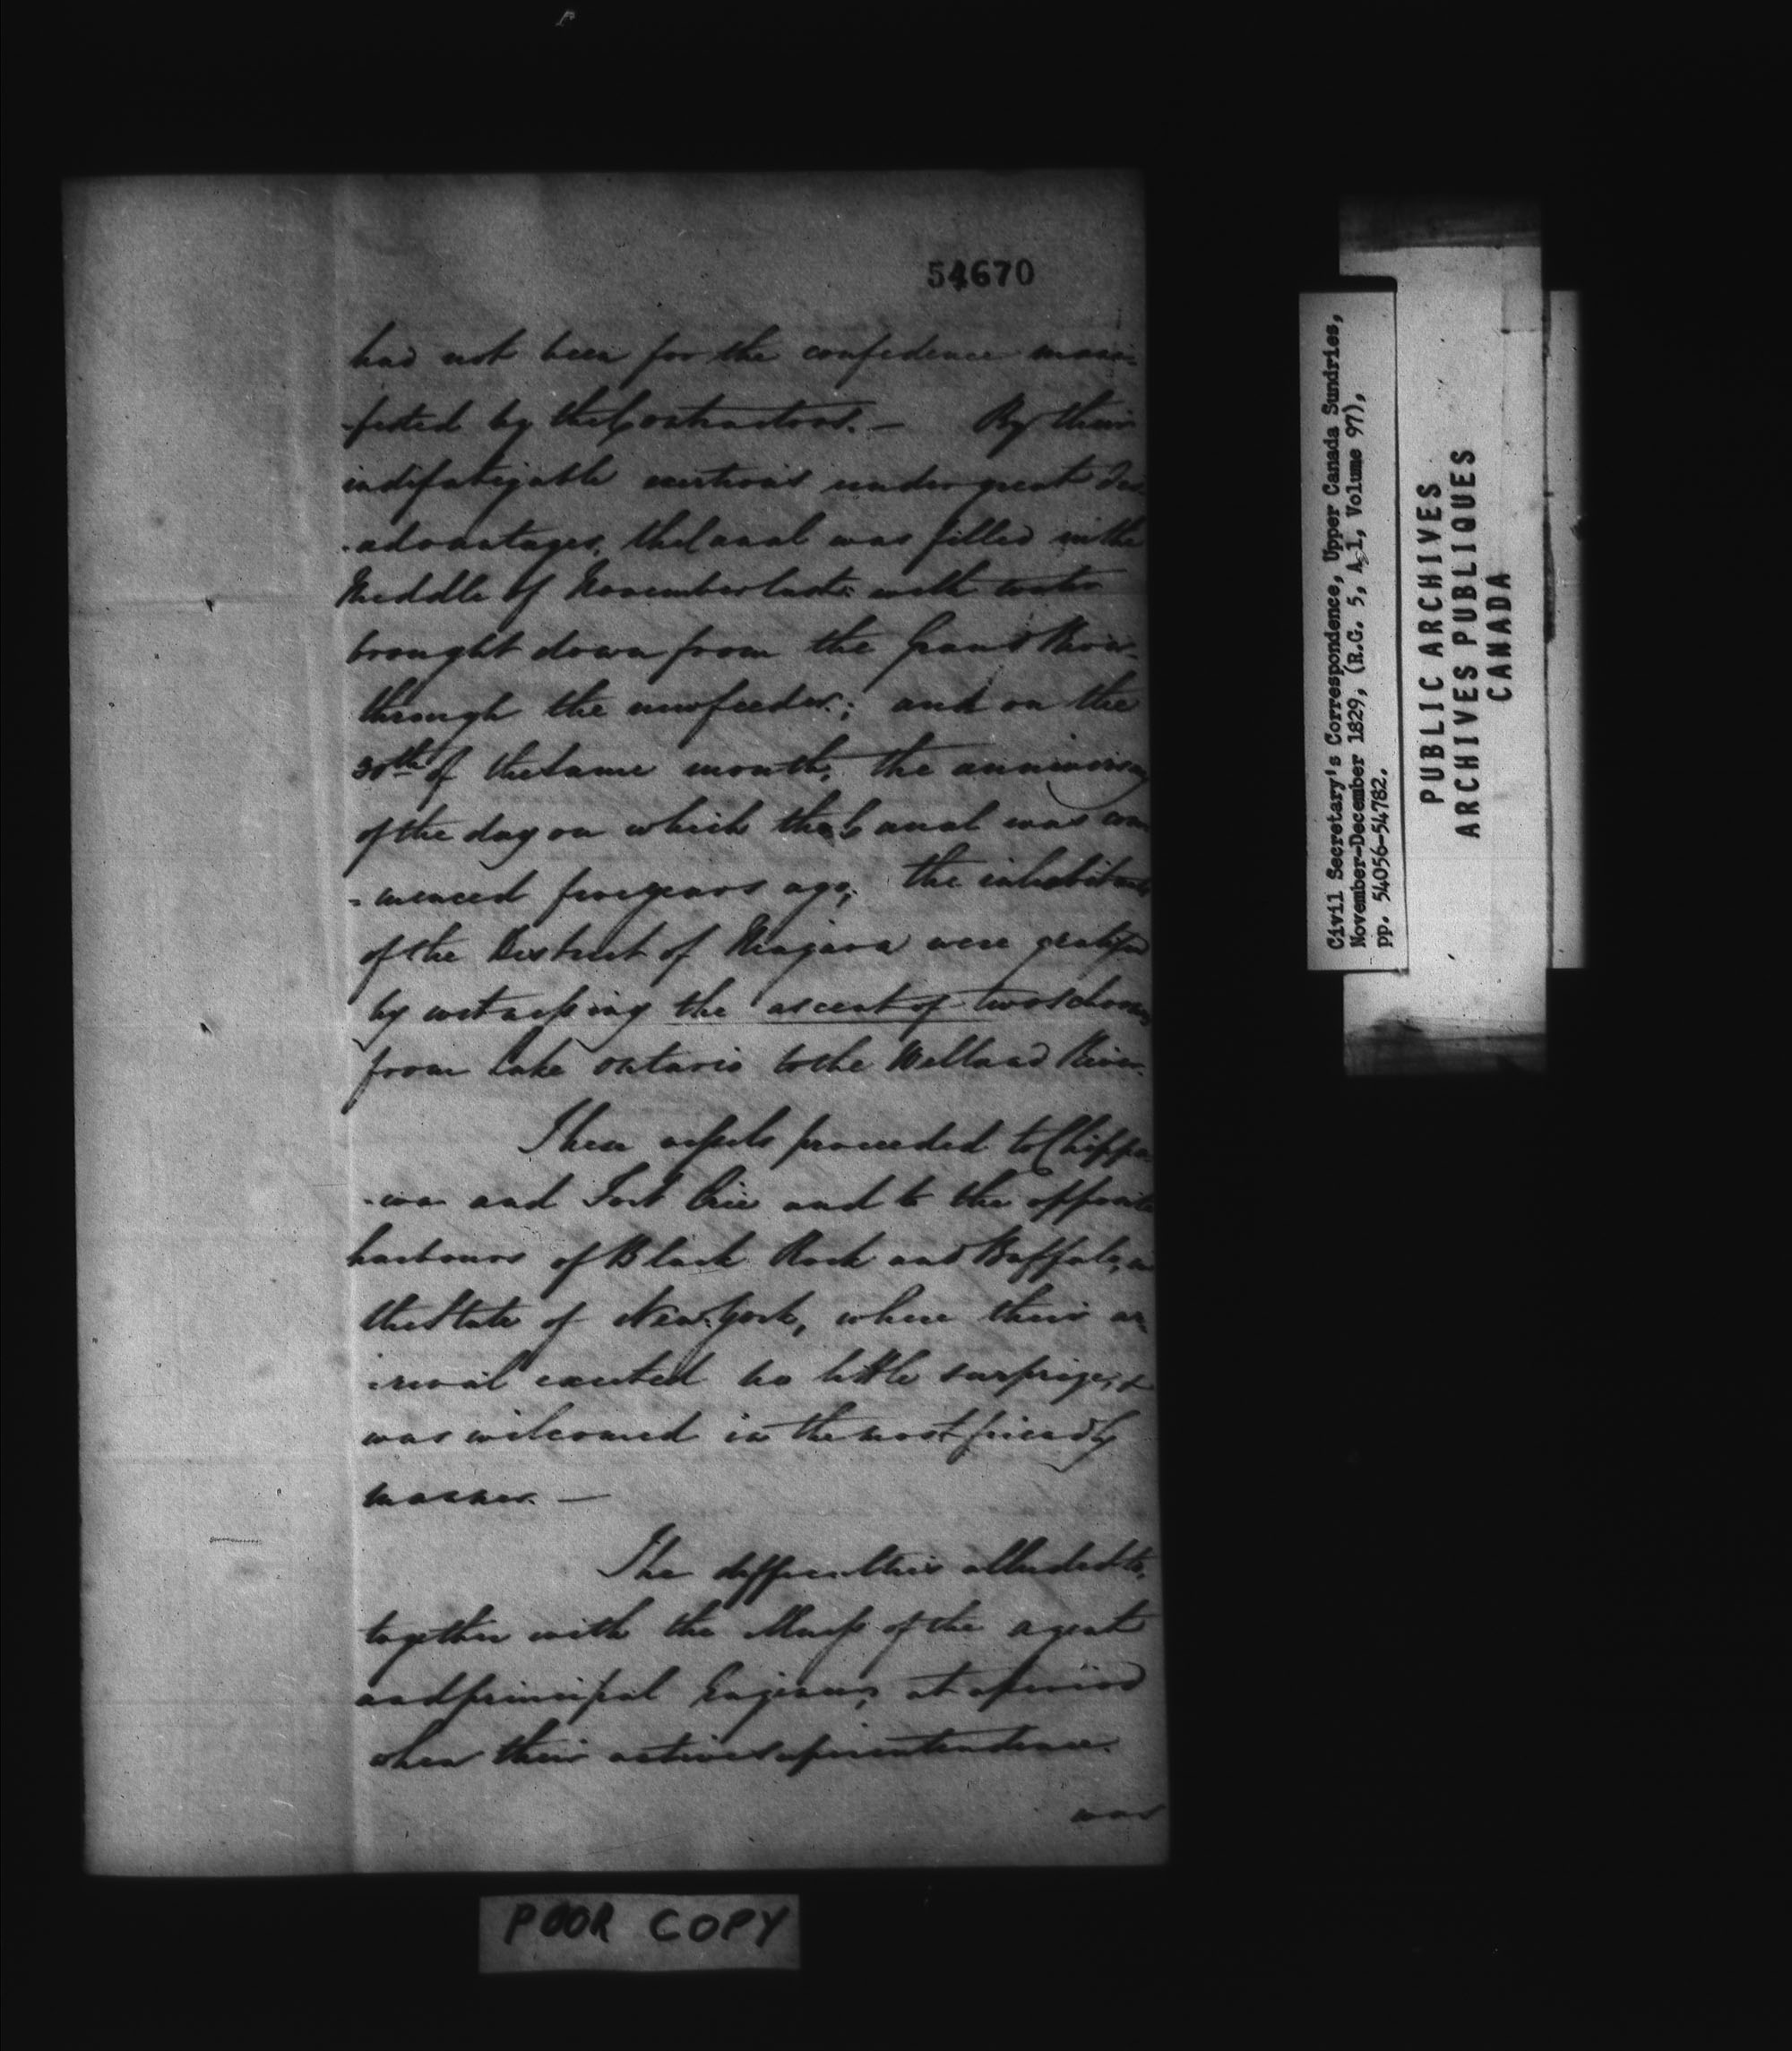 54670
had not been for the confidence mani-
-fested by the Contractors. — By their
indifatigable exertions under great dis-
-advantages, the Canal was filled in the
Middle of November last with water
brought down from the Grand River
through the new feeder; and on the
30th of the same month, the anniversary
of the day on which the Canal was com
- menced five years ago; the inhabitants
of the District of Niagara were gratified
by witnessing the ascent of two schooners
from Lake Ontario to the Welland River.
These vessels proceeded to Chippa-
-wa and Fort Erie and to the opposite
harbours of Black Rock and Buffalo, in
the State of New York, where their ar-
-rival excited no little surprize, &
was welcomed in the most friendly
manner. —
The difficulties alluded to,
together with the illness of the Agent
and principal Engineer, at a period
when their active superintendence
was
POOR COPY
Civil Secretary's Correspondence, Upper Canada Sundries,
November-December 1829, (R.G. 5, A 1, Volume 97),
pp. 54056-54782.
PUBLIC ARCHIVES
ARCHIVES PUBLIQUES
CANADA